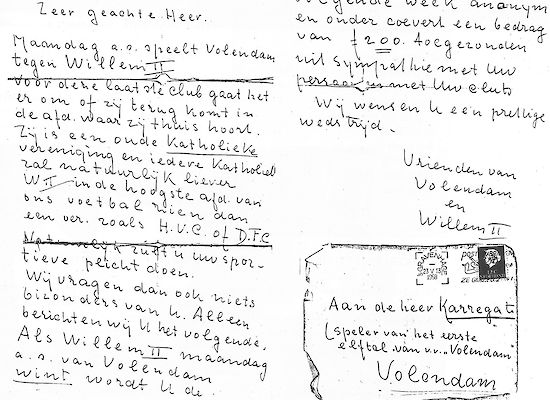 Zeer geachte Heer.
Maandag a.s. speelt Volendam
tegen Willem II
voor deze laatste club gaat het
er om of zij terug komt in
de afd. waar zij thuis hoort.
Zij is een oude Katholieke
vereniging en iedere Katholiek
zal natuurlijk liever
W II in de hoogste afd. van
ons voetbal zien dan
een ver. zoals H.V.C. of D.F.C
Natuurlijk zult u uw spor-
tieve plicht doen.
Wij vragen dan ook niets
bizonders van U. Alleen
berichten wij U het volgende.
Als Willem II maandag
a.s. van Volendam
wint wordt U de
volgende week anonym
en onder couvert een bedrag
van f 200. toegezonden
uit sympathie met Uw
persoon en met Uw club
Wij wensen U een prettige
wedstrijd.
Vrienden van
Volendam
en
Willem II
Aan de heer Karregat
(speler van het eerste
elftal van v.v. "Volendam"
Volendam